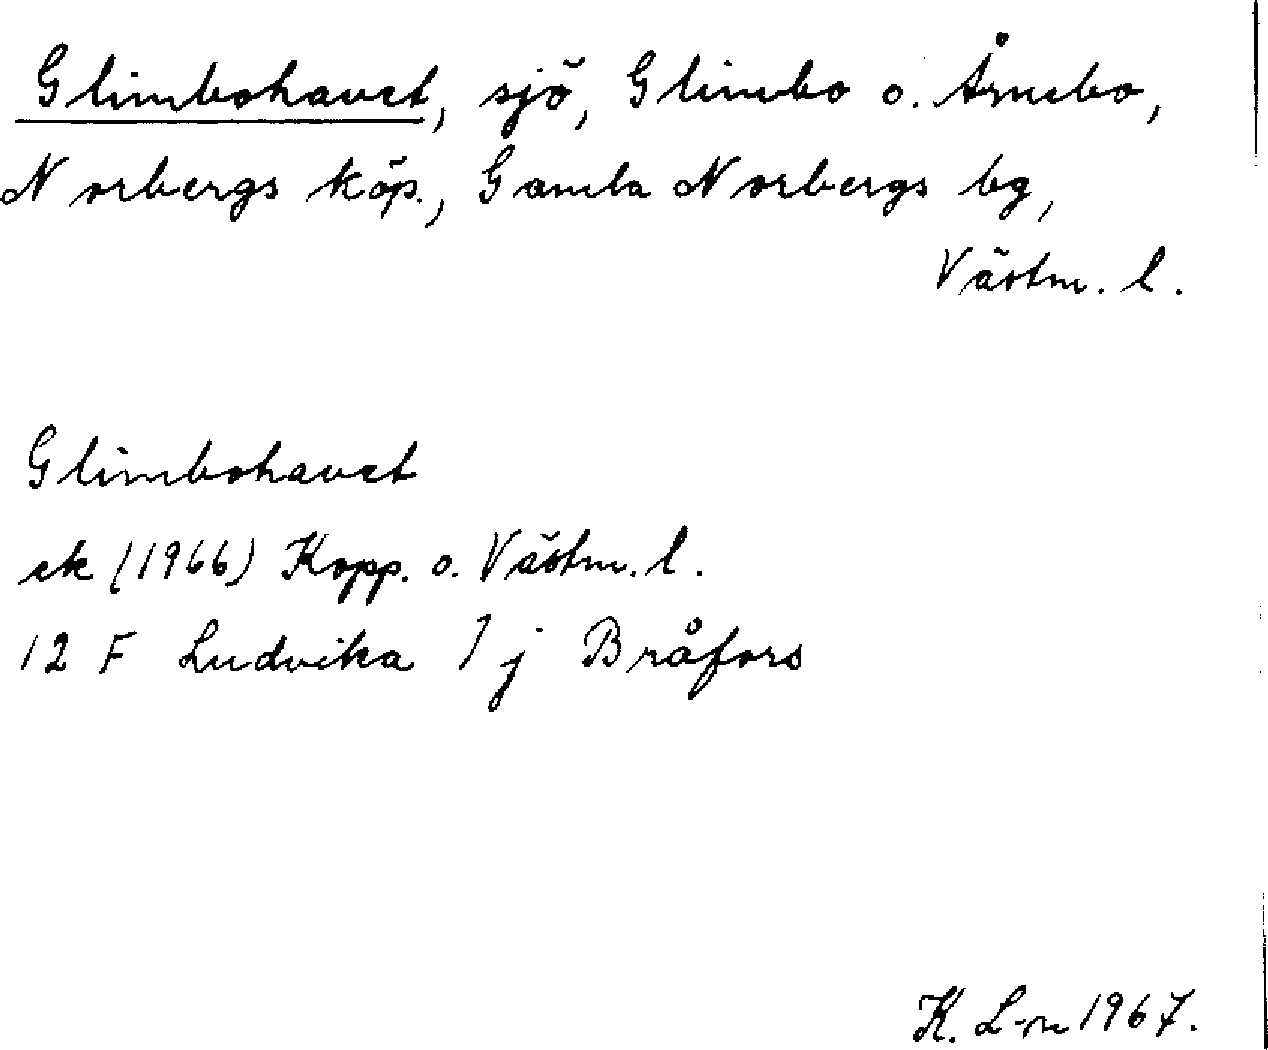 Glimbohavet, sjö, Glimbo o. Årnebo,
Norbergs köp., Gamla Norbergs bg,
Västm. l.
Glimbohavet
ek (1966) Kopp. o. Västm. l.
12 F Ludvika 7 j Bråfors
K. L-n 1967.